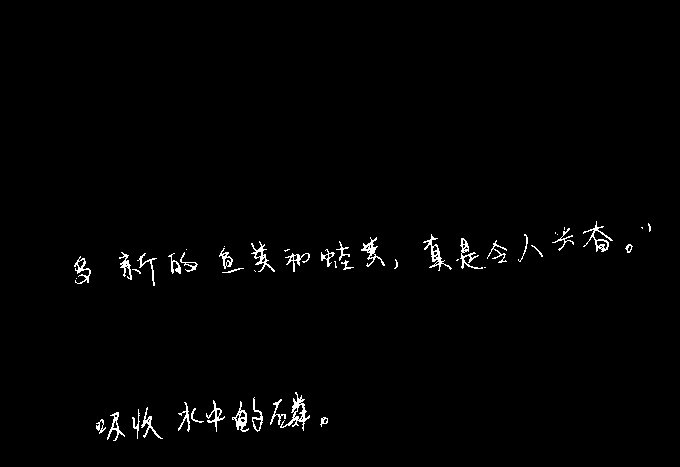 多新的鱼类和蛙类，真是令人兴奋。”
吸收水中的磷。